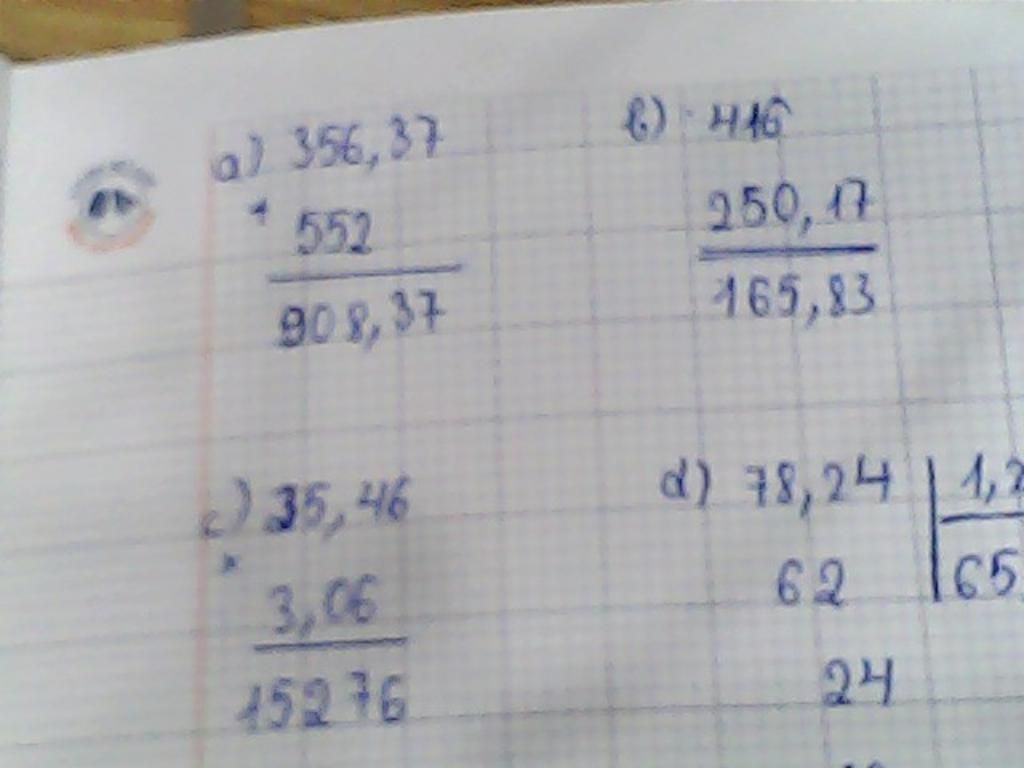 a) 356,37
+
552
908,37
b) 416
250,17
165,83
c) 35,46
×
3,06
15276
d) 78,24 1,2
62 65,
24